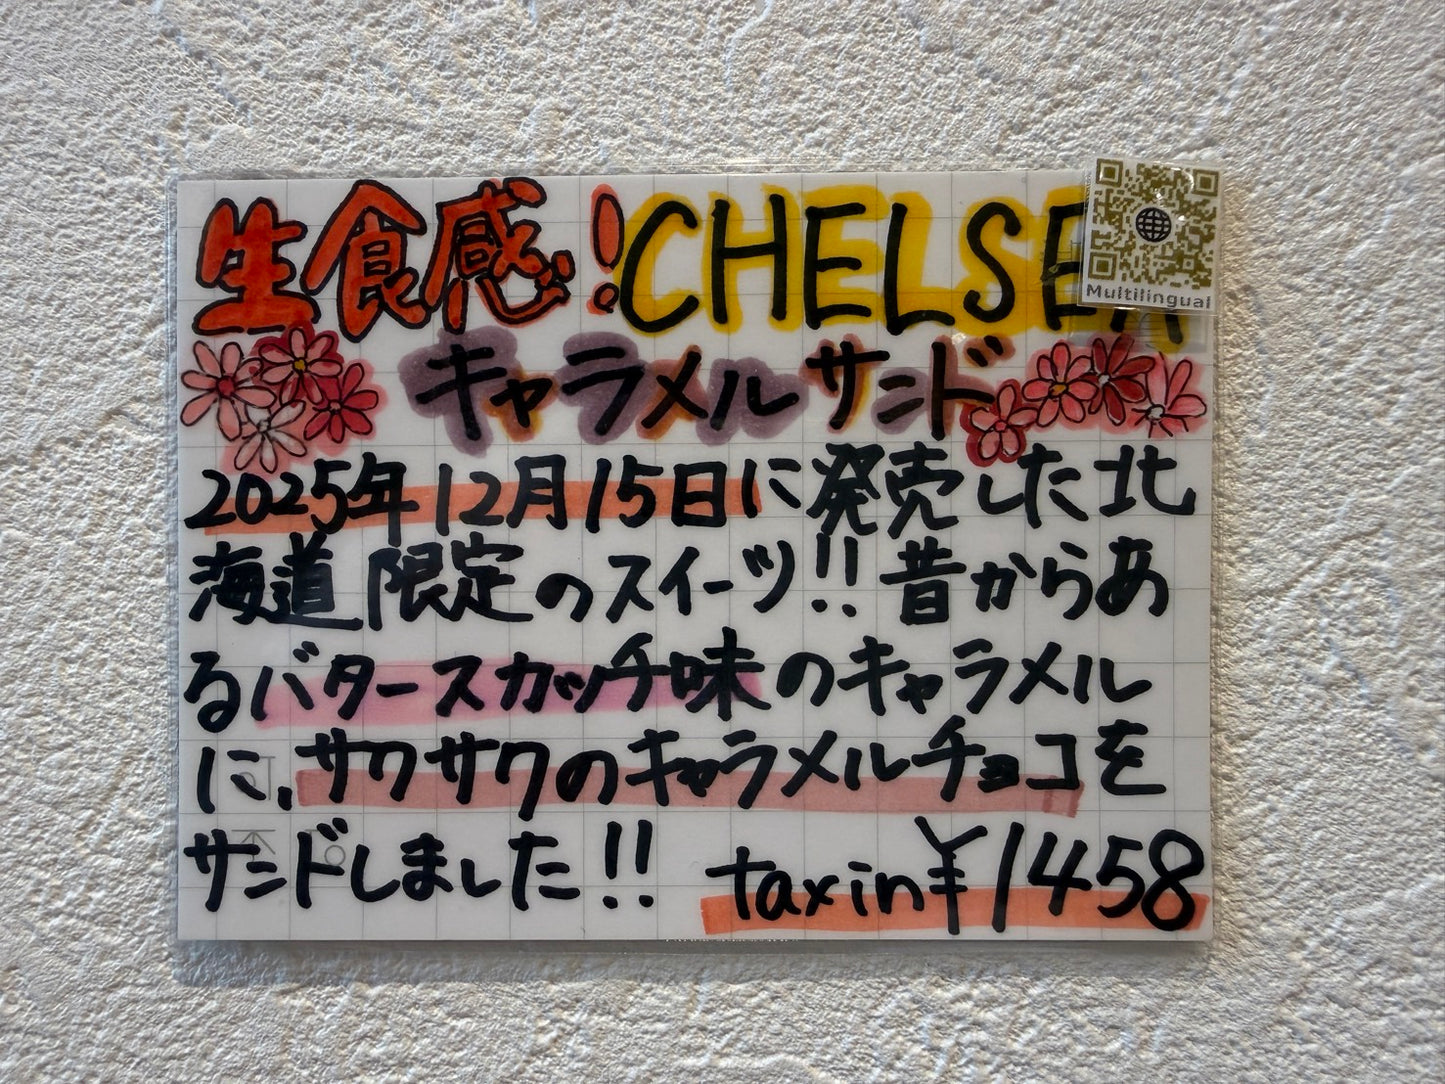 生食感！CHELSEA
Multilingual
キャラメルサンド
2025年12月15日に発売した北
海道限定のスイーツ!! 昔からあ
るバタースカッチ味のキャラメル
に、サクサクのキャラメルチョコを
サンドしました!!
taxin¥1458